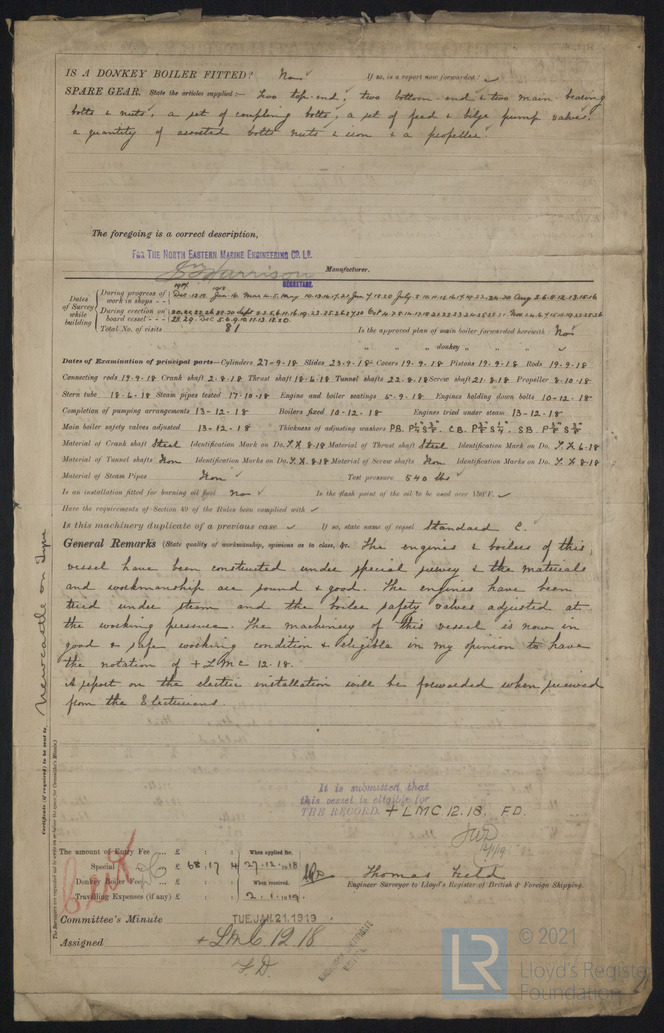 IS A DONKEY BOILER FITTED? No If so, is a report now forwarded?
SPARE GEAR. State the articles supplied:— Two top end, two bottom end & two main bearing
bolts & nuts, a set of coupling bolts, a set of feed & bilge pump valves.
a quantity of assorted bolts nuts & iron & a propeller.
The foregoing is a correct description,
FOR THE NORTH EASTERN MARINE ENGINEERING CO. LD.
Harrison Manufacturer.
SECRETARY.
Dates of Survey while building
During progress of work in shops - -
During erection on board vessel - - -
Total No. of visits 81 Is the approved plan of main boiler forwarded herewith No
" " " donkey " " "
Dates of Examination of principal parts—Cylinders 27-9-18 Slides 23-9-18 Covers 19-9-18 Pistons 19.9.18 Rods 19.9.18
Connecting rods 19.9.18 Crank shaft 2.8.18 Thrust shaft 18-6-18 Tunnel shafts 22.8.18 Screw shaft 21.8.18 Propeller 8-10-18
Stern tube 18.6.18 Steam pipes tested 17-10-18 Engine and boiler seatings 5-9-18 Engines holding down bolts 10-12-18
Completion of pumping arrangements 13-12-18 Boilers fixed 10-12-18 Engines tried under steam 13-12-18
Main boiler safety valves adjusted 13-12-18 Thickness of adjusting washers PB. C.B. S.B.
Material of Crank shaft Steel Identification Mark on Do. 8.18 Material of Thrust shaft Steel Identification Mark on Do. 6.18
Material of Tunnel shafts Iron Identification Marks on Do. 8.18 Material of Screw shafts Iron Identification Marks on Do. 8.18
Material of Steam Pipes Iron Test pressure 540 lbs
Is an installation fitted for burning oil fuel No Is the flash point of the oil to be used over 150°F.
Have the requirements of Section 49 of the Rules been complied with
Is this machinery duplicate of a previous case If so, state name of vessel Standard C.
General Remarks (State quality of workmanship, opinions as to class, &c. The engines & boilers of this
vessel have been constructed under special survey & the materials
and workmanship are sound & good. The engines have been
tried under steam and the boiler safety valves adjusted at
the working pressure. The machinery of this vessel is now in
good & safe working condition & eligible in my opinion to have
the notation of + LMC 12.18.
A report on the electric installation will be forwarded when received
from the Electricians.
Certificate (if required) to be sent to Newcastle on Tyne
It is submitted that
this vessel is eligible for
THE RECORD. + LMC 12.18. F.D.
The amount of Entry Fee ... £ : : When applied for.
Special ... £ 68 : 17 : 4 27.12.1918
Donkey Boiler Fee ... £ : : When received.
Travelling Expenses (if any) £ : : 2.1.1919
Thomas Field
Engineer Surveyor to Lloyd's Register of British & Foreign Shipping.
Committee's Minute TUE.JAN.21.1919
Assigned + LMC 12 18
F.D.
LR © 2021
Lloyd's Register
Foundation